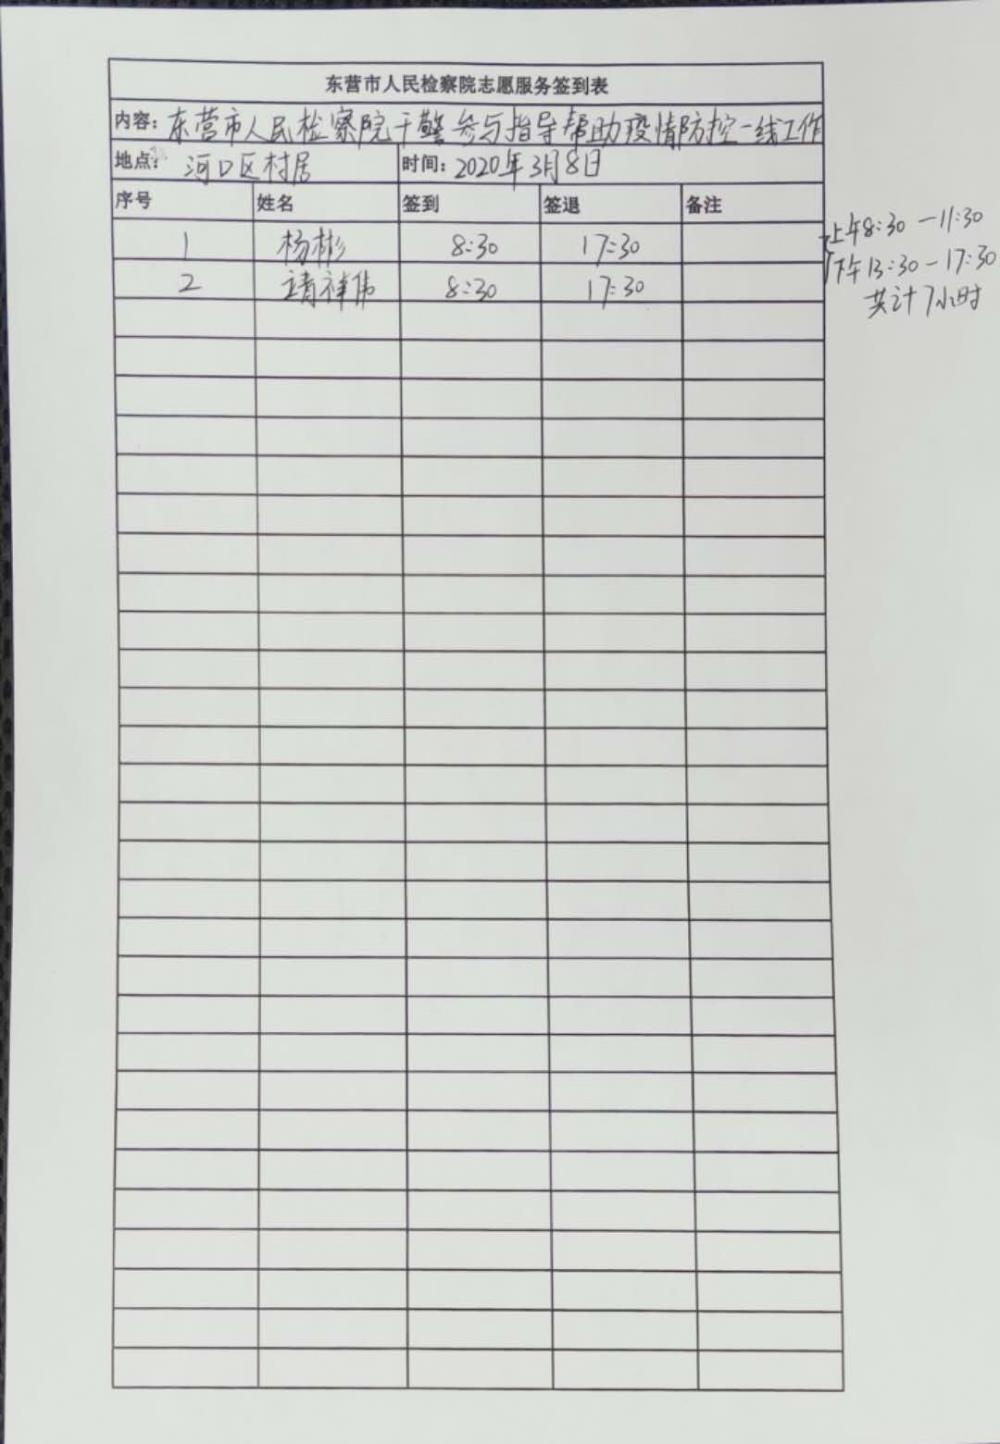 东营市人民检察院志愿服务签到表
内容：东营市人民检察院干警参与指导帮助疫情防控一线工作
地点：河口区村居 时间：2020年3月8日
序号 姓名 签到 签退 备注
1 杨彬 8:30 17:30
2 靖祥伟 8:30 17:30
上午8:30－11:30
下午13:30－17:30
共计7小时